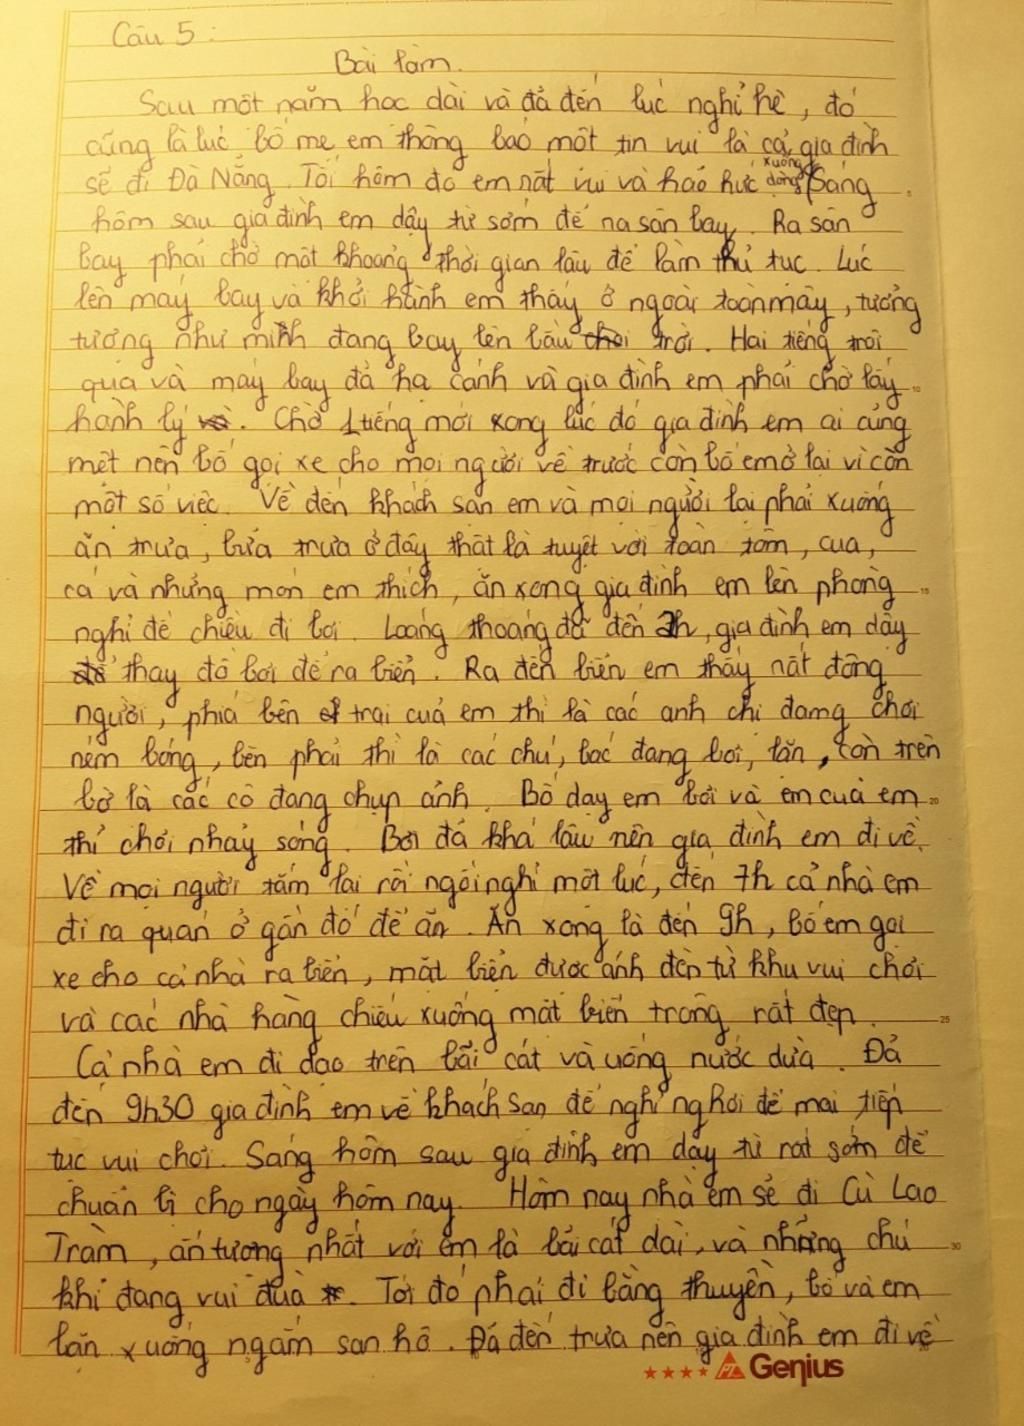 Câu 5:
Bài làm.
Sau một năm học dài và đã đến lúc nghỉ hè, đó
cũng là lúc bố mẹ em thông báo một tin vui là cả gia đình
sẽ đi Đà Nẵng. Tối hôm đó em rất vui và háo hức xuống dòng Sáng
hôm sau gia đình em dậy từ sớm để ra sân bay. Ra sân
bay phải chờ một khoảng thời gian lâu để làm thủ tục. Lúc
lên máy bay và khởi hành em thấy ở ngoài toàn mây, tưởng
tượng như mình đang bay lên bầu trời. Hai tiếng trôi
qua và máy bay đã hạ cánh và gia đình em phải chờ lấy
hành lý. Chờ 1 tiếng mới xong lúc đó gia đình em ai cũng
mệt nên bố gọi xe cho mọi người về trước còn bố em ở lại vì còn
một số việc. Về đến khách sạn em và mọi người lại phải xuống
ăn trưa, bữa trưa ở đây thật là tuyệt với toàn tôm, cua,
cá và những món em thích, ăn xong gia đình em lên phòng
nghỉ để chiều đi bơi. Loáng thoáng đã đến 2h, gia đình em dậy
thay đồ bơi để ra biển. Ra đến biển em thấy rất đông
người, phía bên trái của em thì là các anh chị đang chơi
ném bóng, bên phải thì là các chú, bác đang bơi, lặn, còn trên
bờ là các cô đang chụp ảnh. Bố dạy em bơi và em của em
thì chơi nhảy sóng. Bơi đã khá lâu nên gia đình em đi về.
Về mọi người tắm lại rồi ngồi nghỉ một lúc, đến 7h cả nhà em
đi ra quán ở gần đó để ăn. Ăn xong là đến 9h, bố em gọi
xe cho cả nhà ra biển, mặt biển được ánh đèn từ khu vui chơi
và các nhà hàng chiếu xuống mặt biển trông rất đẹp.
Cả nhà em đi dạo trên bãi cát và uống nước dừa. Đã
đến 9h30 gia đình em về khách sạn để nghỉ ngơi để mai tiếp
tục vui chơi. Sáng hôm sau gia đình em dậy từ rất sớm để
chuẩn bị cho ngày hôm nay. Hôm nay nhà em sẽ đi Cù Lao
Tràm, ấn tượng nhất với em là bãi cát dài, và những chú
khỉ đang vui đùa. Tới đó phải đi bằng thuyền, bố và em
lặn xuống ngắm san hô. Đã đến trưa nên gia đình em đi về
PT Genius